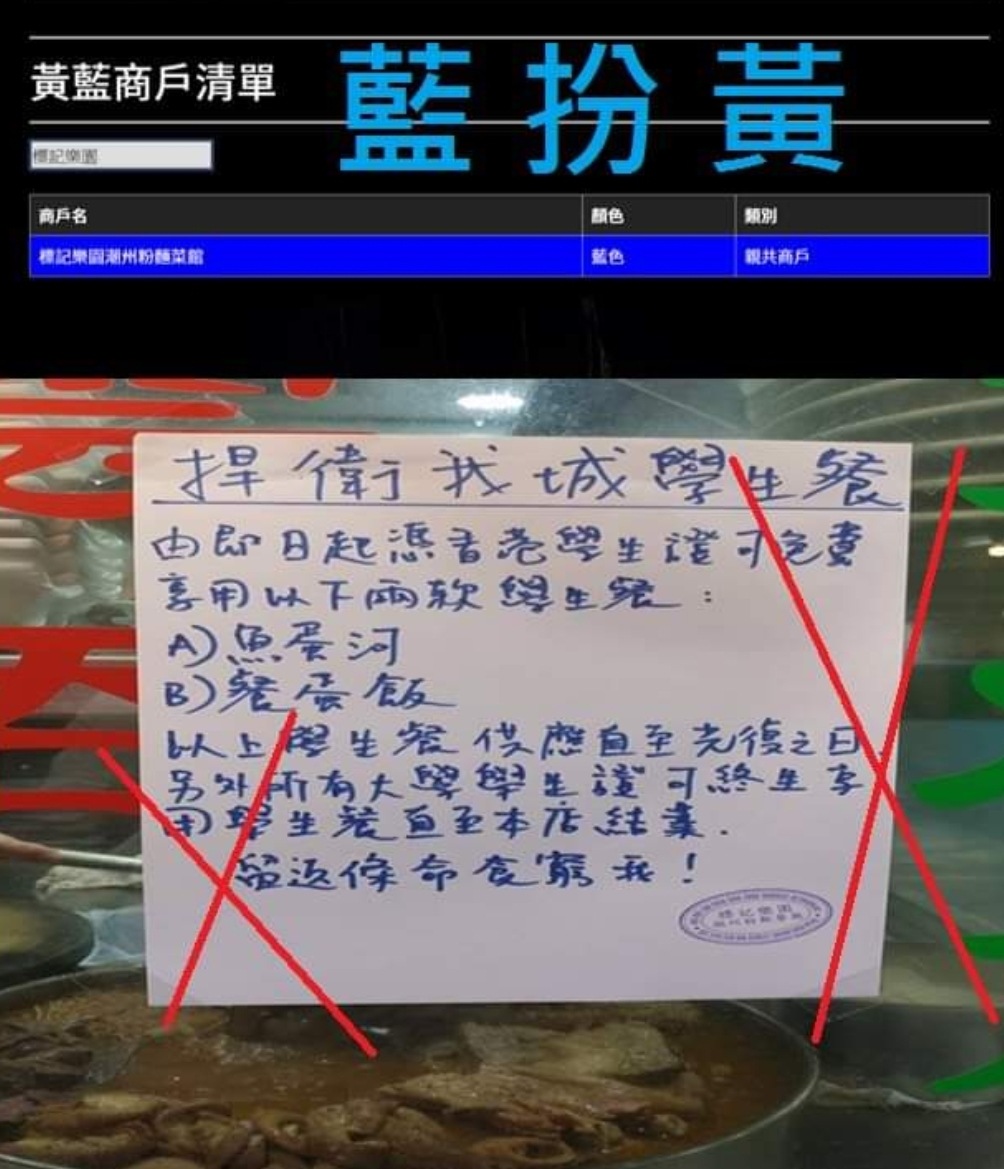 黃藍商戶清單
藍扮黃
標記樂園
商戶名 顏色 類別
標記樂園潮州粉麵菜館 藍色 親共商戶
捍衛我城學生餐
由即日起憑香港學生證可免費
享用以下兩款學生餐：
A)魚蛋河
B)餐蛋飯
以上學生餐供應直至光復之日
另外所有大學學生證可終生享
用學生餐直至本店結業.
留返條命食窮我！